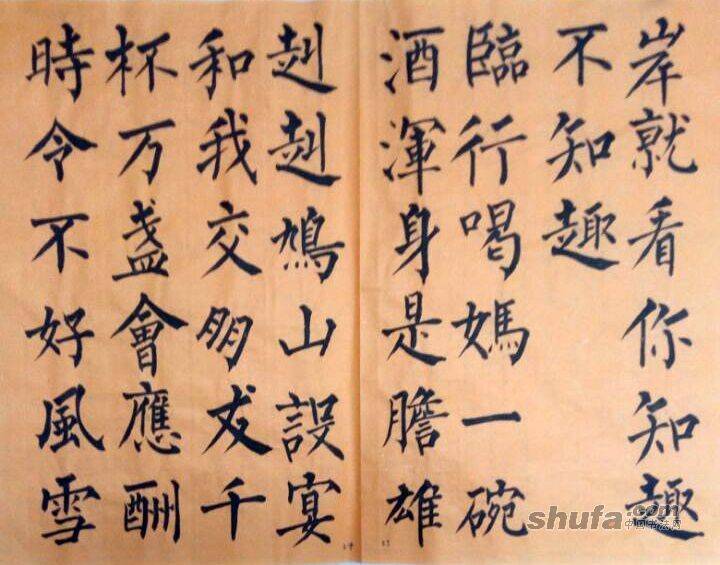 岸就看你知趣
不知趣
臨行喝媽一碗
酒渾身是膽雄
赳赳鳩山設宴
和我交朋友千
杯万盞會應酬
時令不好風雪
shufa.com
中国书法网